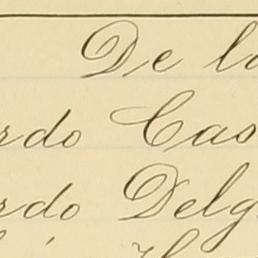 De la
rdo Cas
rdo Delg